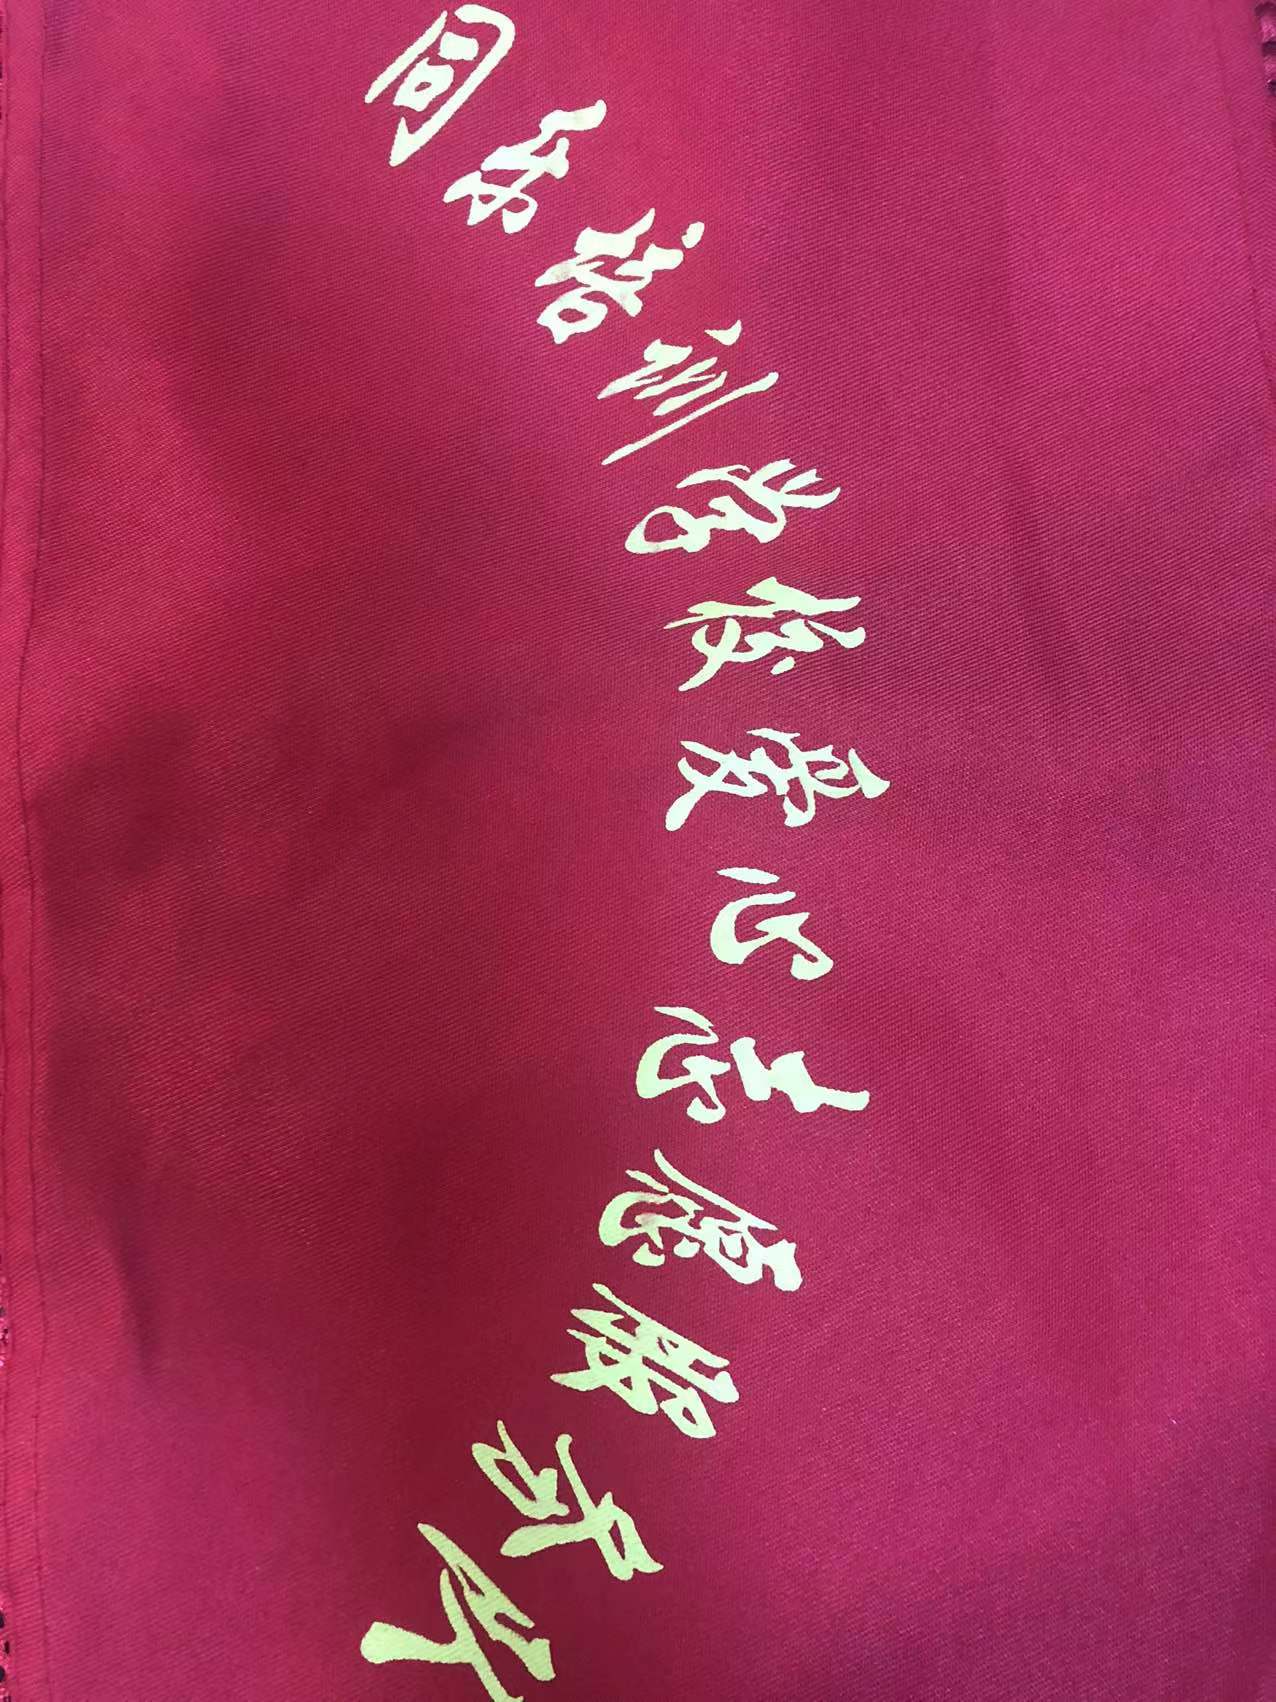 同乐培训学校爱心志愿服务队